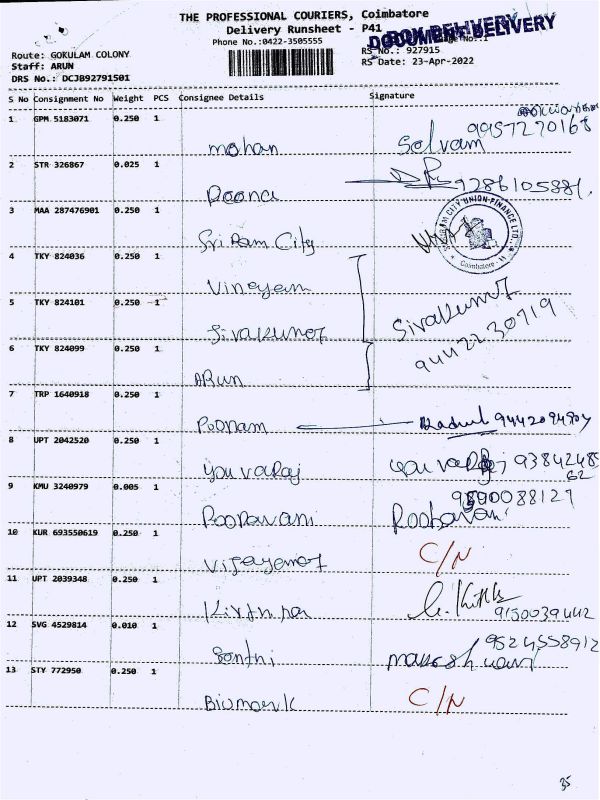 THE PROFESSIONAL COURIERS, Coimbatore
Delivery Runsheet - P41
Phone No.:0422-3505555
DOCUMENT DELIVERY
Route: GOKULAM COLONY
Staff: ARUN
DRS No.: DCJB92791501
RS No.: 927915
RS Date: 23-Apr-2022
S No Consignment No Weight PCS Consignee Details Signature
1 GPM 5183071 0.250 1
9957270168
mohan Selvam
2 STR 326867 0.025 1
9286105881.
Poona
3 MAA 287476901 0.250 1
CITY UNION FINANCE LTD.
Coimbatore
Sri Ram City
4 TKY 824036 0.250 1
Vinayam
5 TKY 824101 0.250 1
Sivakumar
9442230719
Sivakumar
6 TKY 824099 0.250 1
ARun
7 TRP 1640918 0.250 1
Poonam
8 UPT 2042520 0.250 1
youvaraj youvaraj 93842485
62
9 KMU 3240979 0.005 1
9590088127
Roopavani Roobavani
10 KUR 693550619 0.250 1
C/N
Vijayamoz
11 UPT 2039348 0.250 1
9150039442
12 SVG 4529814 0.010 1
9524558912
Santhi
13 STY 772950 0.250 1
C/N
Bismark
35